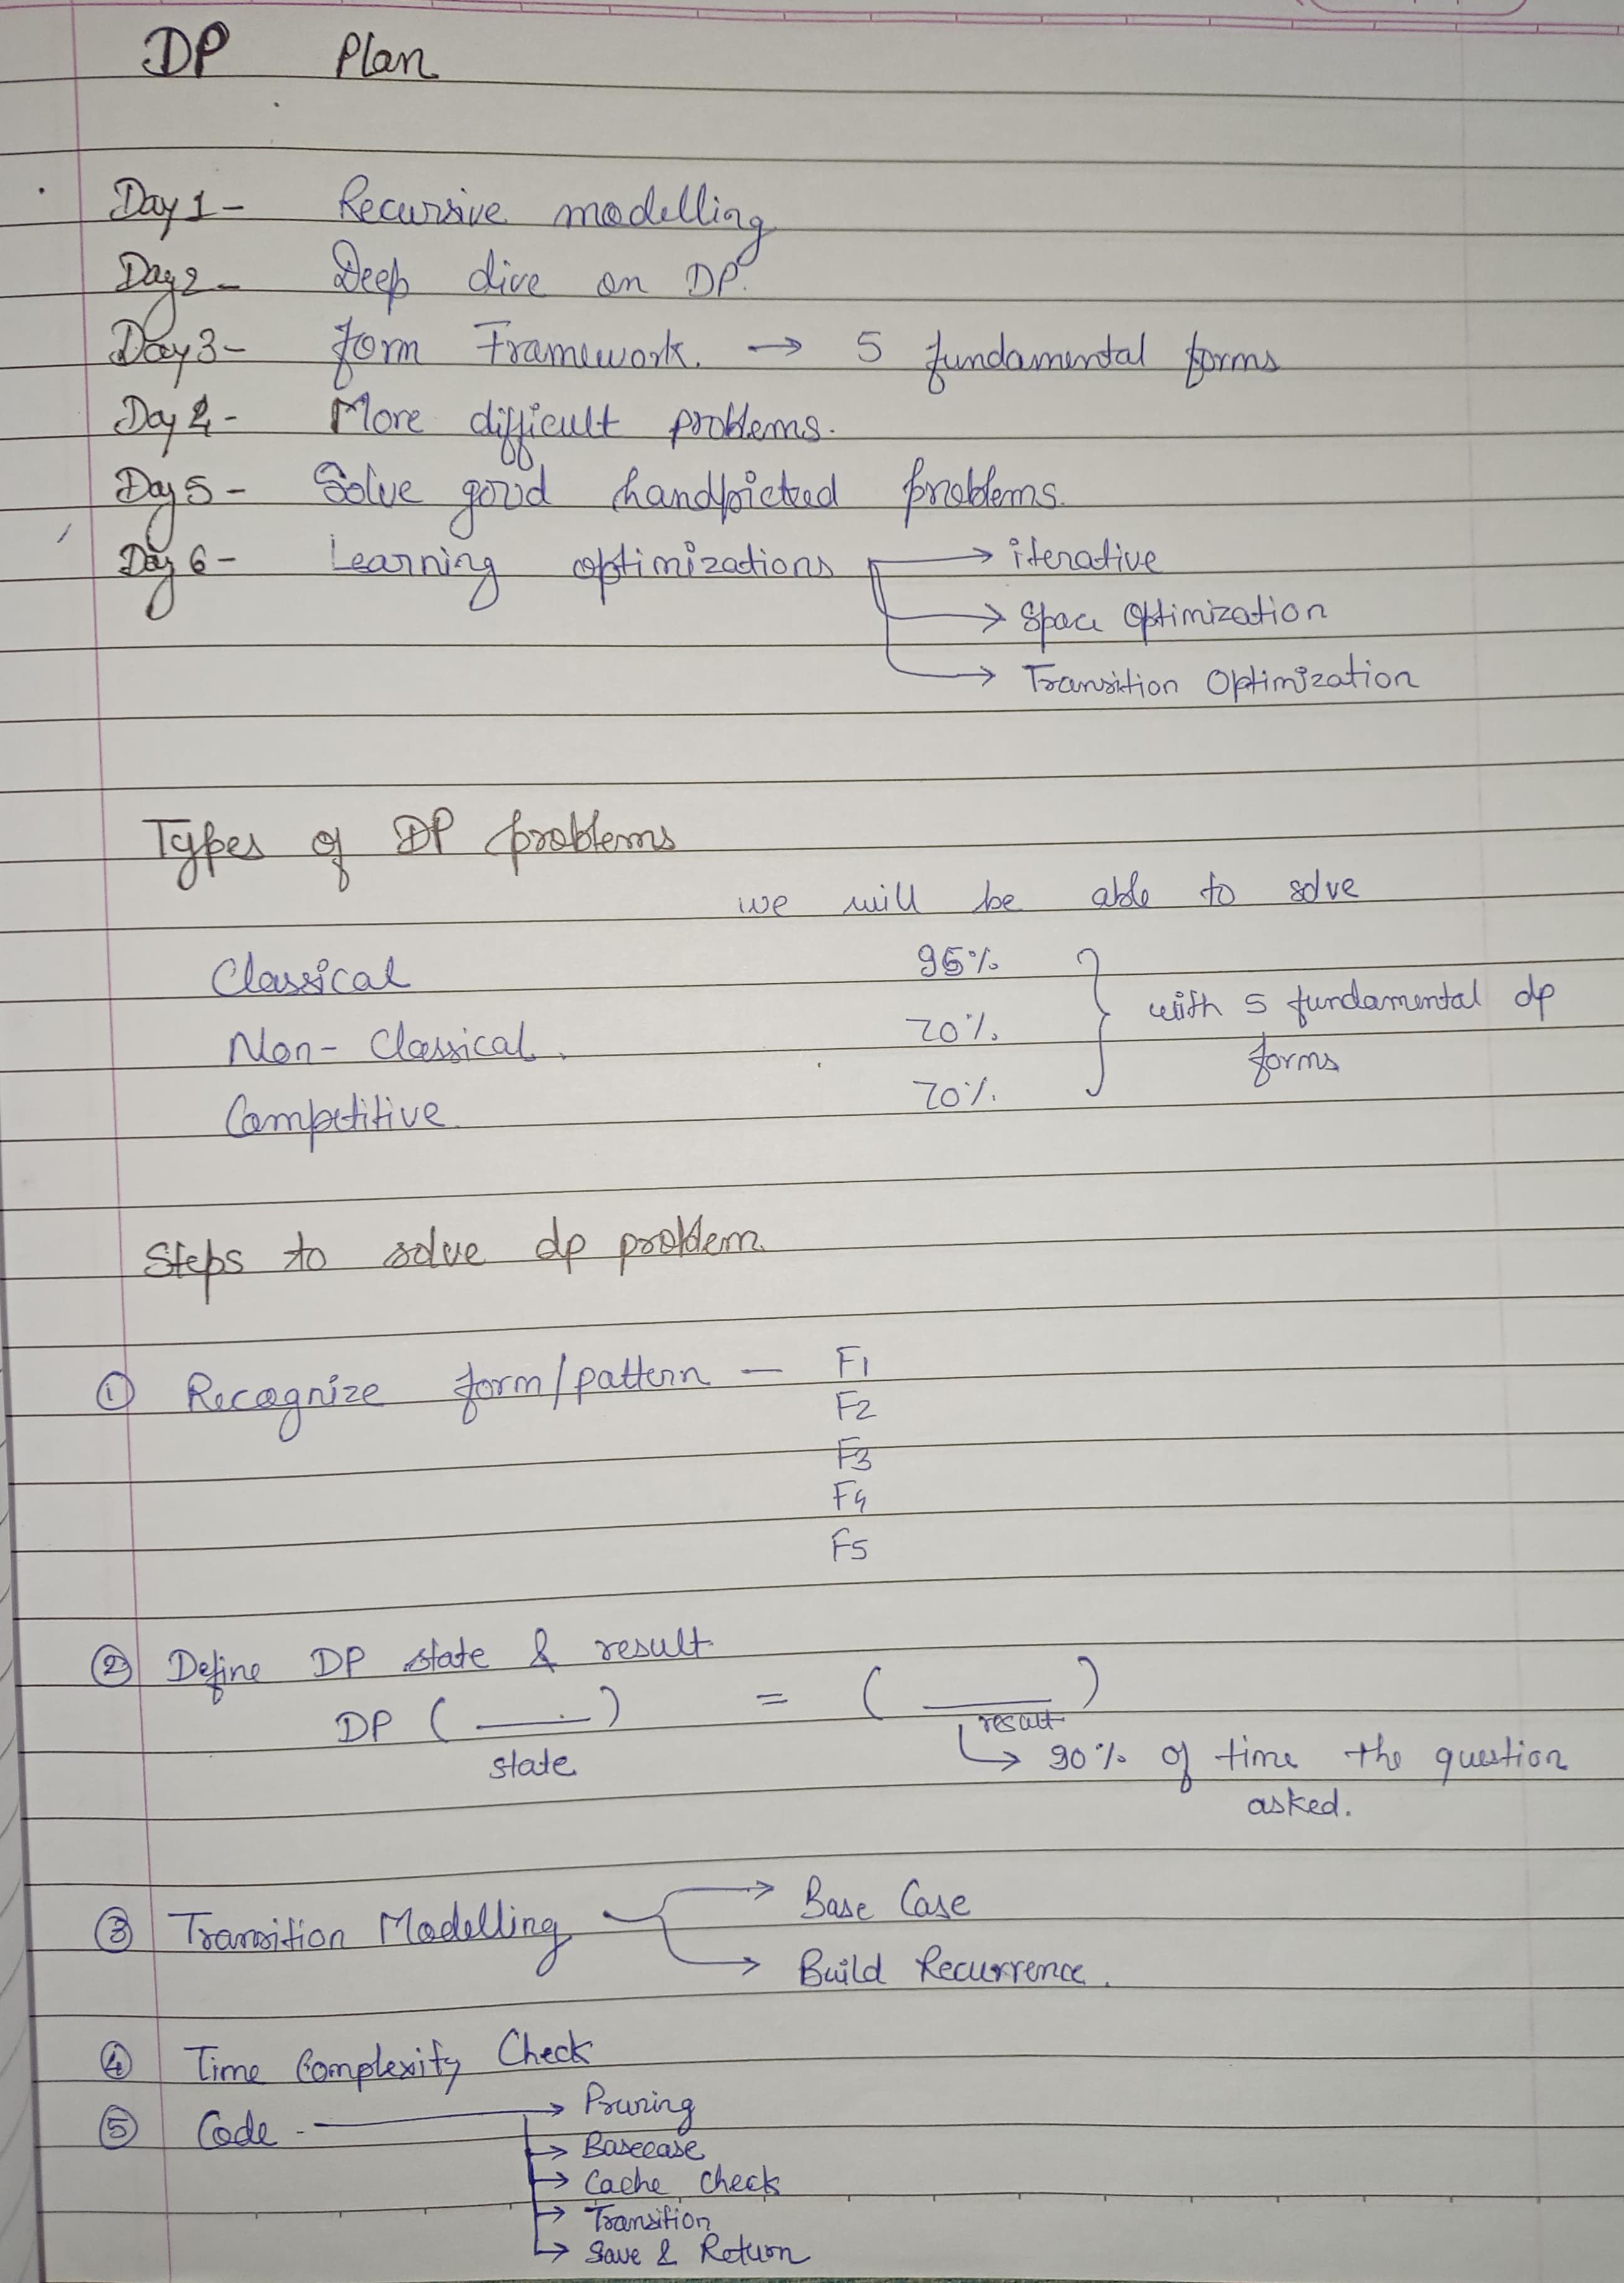 DP Plan
Day 1 - Recursive modelling
Day 2 - Deep dive on DP.
Day 3 - form Framework. → 5 fundamental forms
Day 4 - More difficult problems.
Day 5 - Solve good handpicked problems.
Day 6 - Learning optimizations → iterative
→ Space Optimization
→ Transition Optimization
Types of DP problems
we will be able to solve
Classical 95%
Non-Classical. 70% with 5 fundamental dp
forms
Competitive. 70%
Steps to solve dp problem.
① Recognize form/pattern — F1
F2
F3
F4
F5
② Define DP state & result
DP ( ___ ) = ( ___ )
state result
↳ 90% of time the question
asked.
③ Transition Modelling → Base Case
→ Build Recurrence.
④ Time Complexity Check
⑤ Code - → Pruning
→ Basecase
→ Cache Check
→ Transition
→ Save & Return